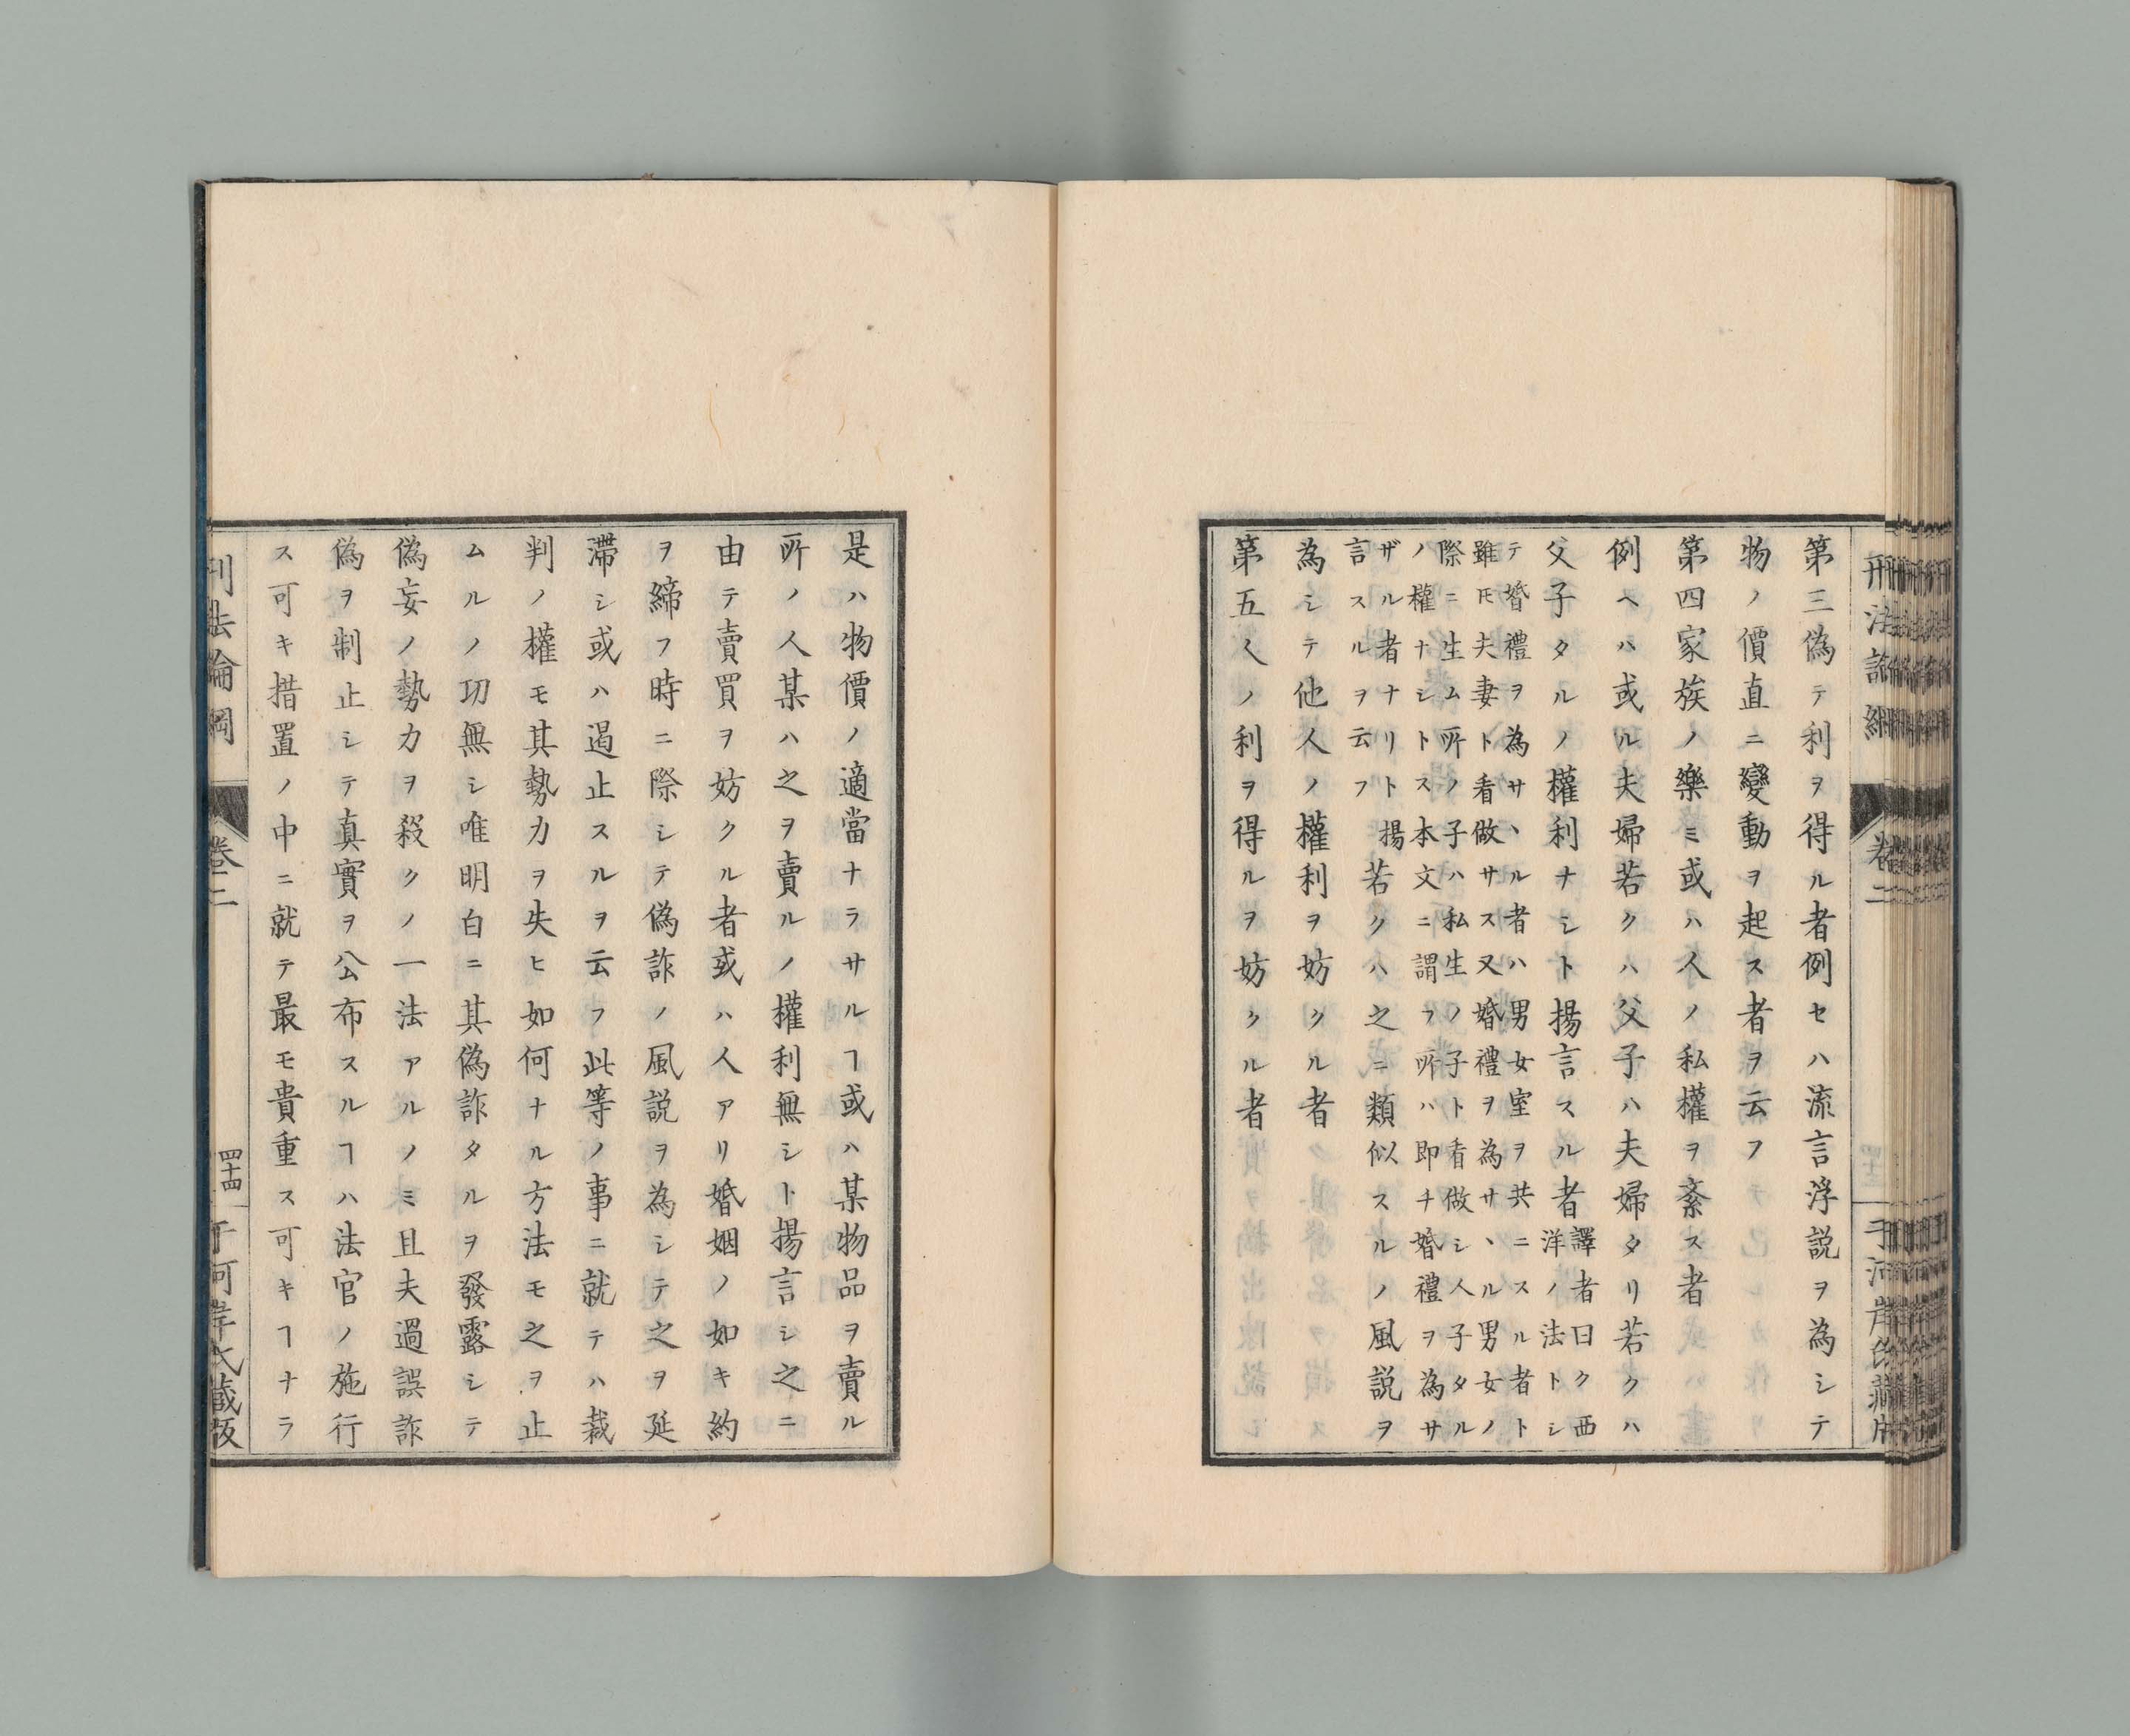 刑法論綱
卷二
第三偽テ利ヲ得ル者例セハ流言浮説ヲ為シテ
物ノ價直ニ變動ヲ起ス者ヲ云フ
第四家族ノ樂ミ或ハ人ノ私權ヲ紊ス者
例ヘハ或ル夫婦若クハ父子ハ夫婦タリ若クハ
父子タルノ權利ナシト揚言スル者譯者曰ク西
洋ノ法トシ
テ婚禮ヲ為サヽル者ハ男女室ヲ共ニスル者ト
雖𪜈夫妻ト看做サス又婚禮ヲ為サヽル男女ノ
際ニ生ム所ノ子ハ私生ノ子ト看做シ人子タル
ノ權ナシトス本文ニ謂フ所ハ即チ婚禮ヲ為サ
ザル者ナリト揚
言スルヲ云フ
若クハ之ニ類似スルノ風説ヲ
為シテ他人ノ權利ヲ妨クル者
第五人ノ利ヲ得ルヲ妨クル者
是ハ物價ノ適當ナラサルヿ或ハ某物品ヲ賣ル
所ノ人某ハ之ヲ賣ルノ權利無シト揚言シ之ニ
由テ賣買ヲ妨クル者或ハ人アリ婚姻ノ如キ約
ヲ締フ時ニ際シテ偽詐ノ風説ヲ為シテ之ヲ延
滯シ或ハ遏止スルヲ云フ此等ノ事ニ就テハ裁
判ノ權モ其勢力ヲ失ヒ如何ナル方法モ之ヲ止
ムルノ功無シ唯明白ニ其偽詐タルヲ發露シテ
偽妄ノ勢力ヲ殺クノ一法アルノミ且夫過誤詐
偽ヲ制止シテ真實ヲ公布スルヿハ法官ノ施行
ス可キ措置ノ中ニ就テ最モ貴重ス可キヿナラ
刑法論綱
卷二
四十四
于河岸氏藏版